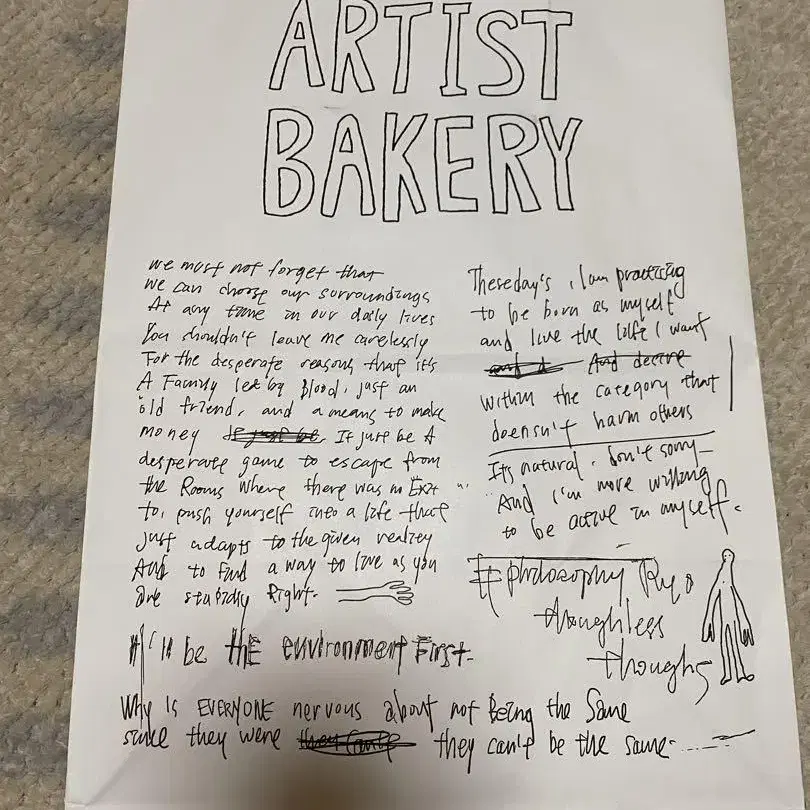 ARTIST
BAKERY
we must not forget that
we can choose our surroundings
At any time in our daily lives
You shouldn't leave me carelessly
For the desperate reasons that it's
A Family led by Blood, just an
old friend, and a means to make
money It just be A
desperate game to escape from
the Rooms where there was no Exit
to, push yourself into a life that
just adapts to the given reality
And to find a way to live as you
are stupidly Right.
I'll be tHE environment First.
Thesedays, I am practicing
to be born as myself
and live the life I want
And desire
within the category that
doensn't harm others
It's natural, don't sorry
And I'm more willing
to be active in myself.
#philosophy Ryo
thoughless
thoughs
Why is EVERYONE nervous about not Being the Same
since they were they can't be the same.